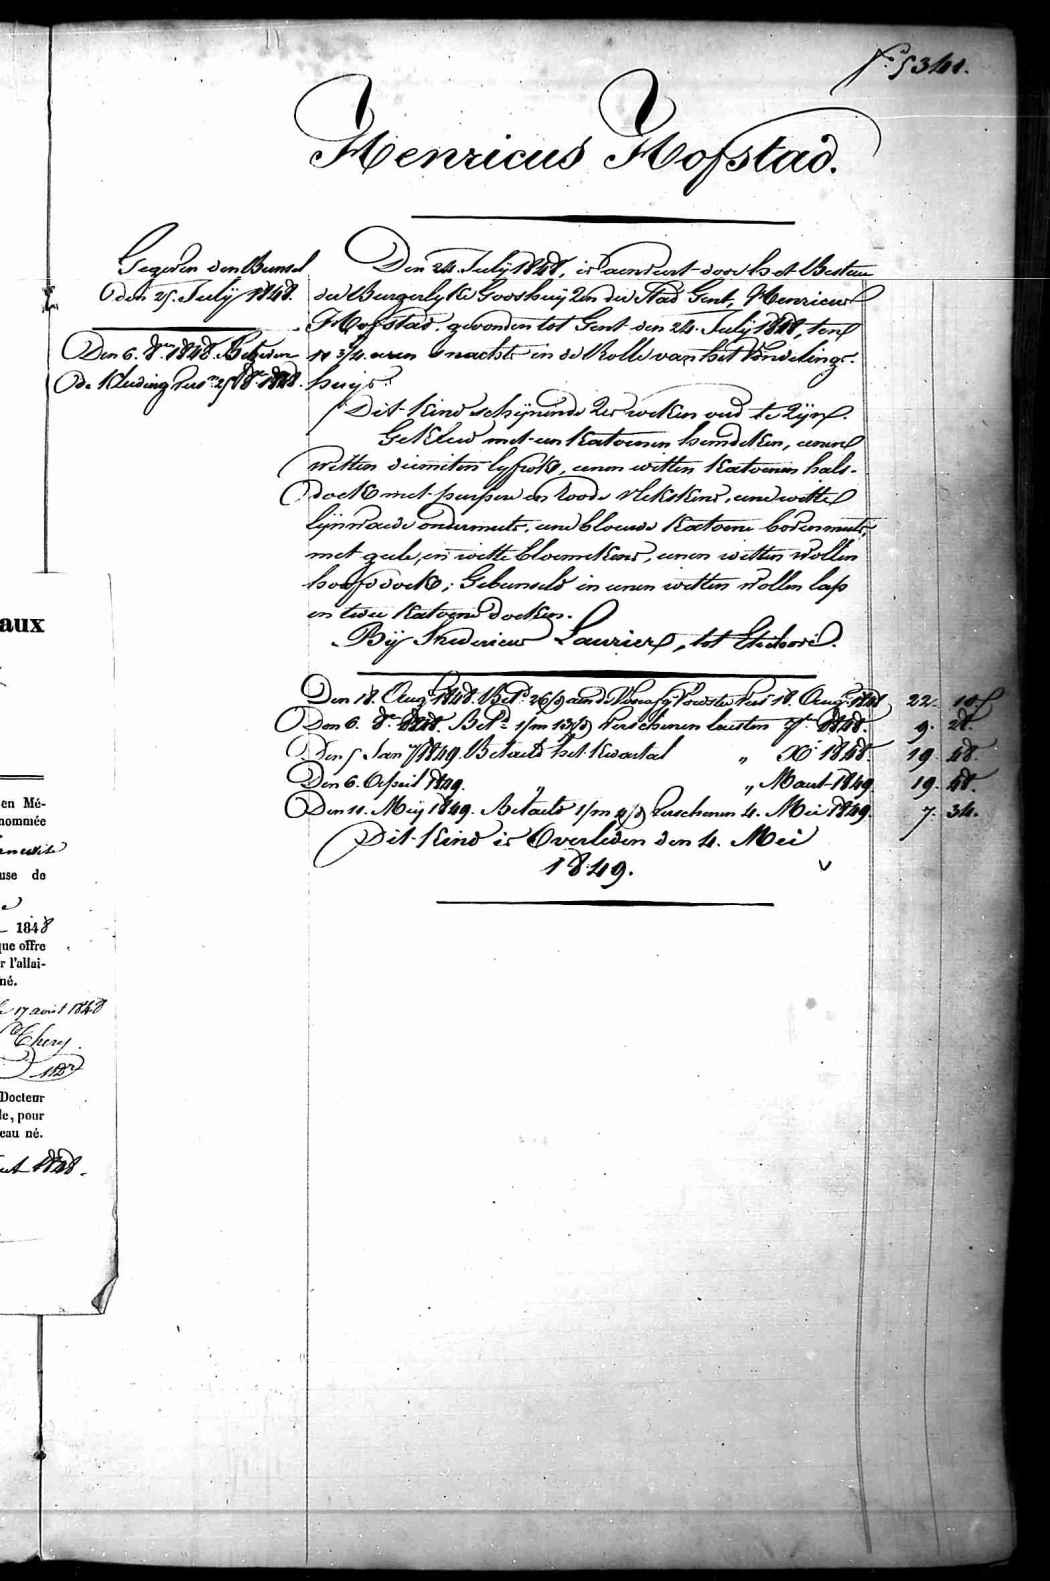 F.º 534.
Henricus Hofstad.
Gegeven den Bunsel
den 25 July 1848.
Den 6. 8.ber 1848. Betaeden
de Kleeding
Den 24 July 1848, is aenveirt door het Bestuur
der Burgerlyke Godshuyzen der Stad Gent, Henricus
Hofstad. gevonden tot Gent den 24. July 1848, ten
11 3/4 uren s'nachts in de Rolle van het Vondelings-
huys.
Dit kind schynende zes weken oud te zyn.
Gekleed met een katoenen hemdeken, eenen
witten diemiten lyfrok, eenen witten katoenen hals-
doek met purpere en roode vlekskens, eene witte
lynwaede ondermuts, eene blouwe katoene bovenmuts,
met geele, en witte bloemekens, eenen witten wollen
hoofddoek; Gebunseld in eenen witten wollen lap
en twee katoene doeken.
By Laurier, tot
Den 18. Aug. 1848. Bet.d 26/d aen de 18. Aug. 1848 22. 10
Den 6. 8.r 1848. Bet.d 1/m 13/d verschenen laesten 7.r 1848. 9. 28.
Den 5 Jan 1849. Betaeld het kwartal „ X.r 1848. 19. 48.
Den 6. April 1849. „ Maert 1849. 19. 48.
Den 11. Mey 1849. Betaeld 1/m 4/d verschenen 4. Mei 1849. 7. 34.
Dit kind is Overleden den 4. Mei
1849.
aux
en Mé-
nommée
use de
1848
que offre
r l'allai-
né.
le 17 aout 1848
Docteur
le, pour
eau né.
1848.